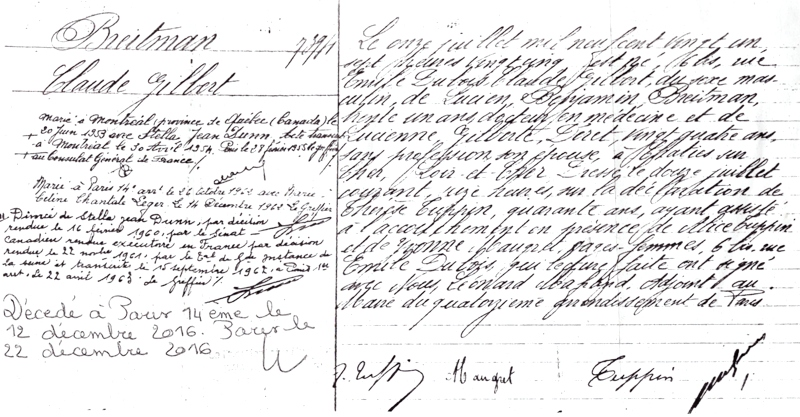 Breitman
Claude Gilbert
Marié à Montréal (province de Québec (Canada) le
20 juin 1953 avec Stella Jean Dunn, acte transcrit
à Montréal le 30 avril 1954. Paris le 28 1955 le greffier
au Consulat Général de France /.
Marié à Paris 14e arrt le 26 octobre 1962 avec Marie
Céline Chantale Léger. le 14 Décembre 1962 Le Greffier
Divorcé de Stella Jean Dunn, par décision
rendue le 16 février 1960, par le Sénat
Canadien rendue exécutoire en France par décision
rendue le 22 novbre 1961, par le de Gde Instance de
la Seine et transcrite le 15 septembre 1962, à Paris 1er
arrt, le 22 avril 1963 le Greffier /.
Décédé à Paris 14ème le
12 décembre 2016. Paris le
22 décembre 2016
Le onze juillet mil neuf cent vingt un,
sept heures vingt cinq, est né, 6 bis, rue
Emile Dubois, Claude Gilbert, du sexe mas
culin, de Lucien, Benjamin, Breitman,
trente un ans, docteur en médecine et de
Lucienne, Gilberte, vingt quatre ans,
sans profession, son épouse, à sur
Cher, Loir et Cher. Dressé le douze juillet
courant, heures, sur la déclaration de
Thérèse Tuppin, quarante ans, ayant assisté
à l'accouchement en présence de Alice Tuppin
et de Yvonne sages-femmes, 6 bis rue
Emile Dubois, qui lecture faite ont signé
avec Nous, Léonard Adjoint au
Maire du quatorzième arrondissement de Paris
Tuppin